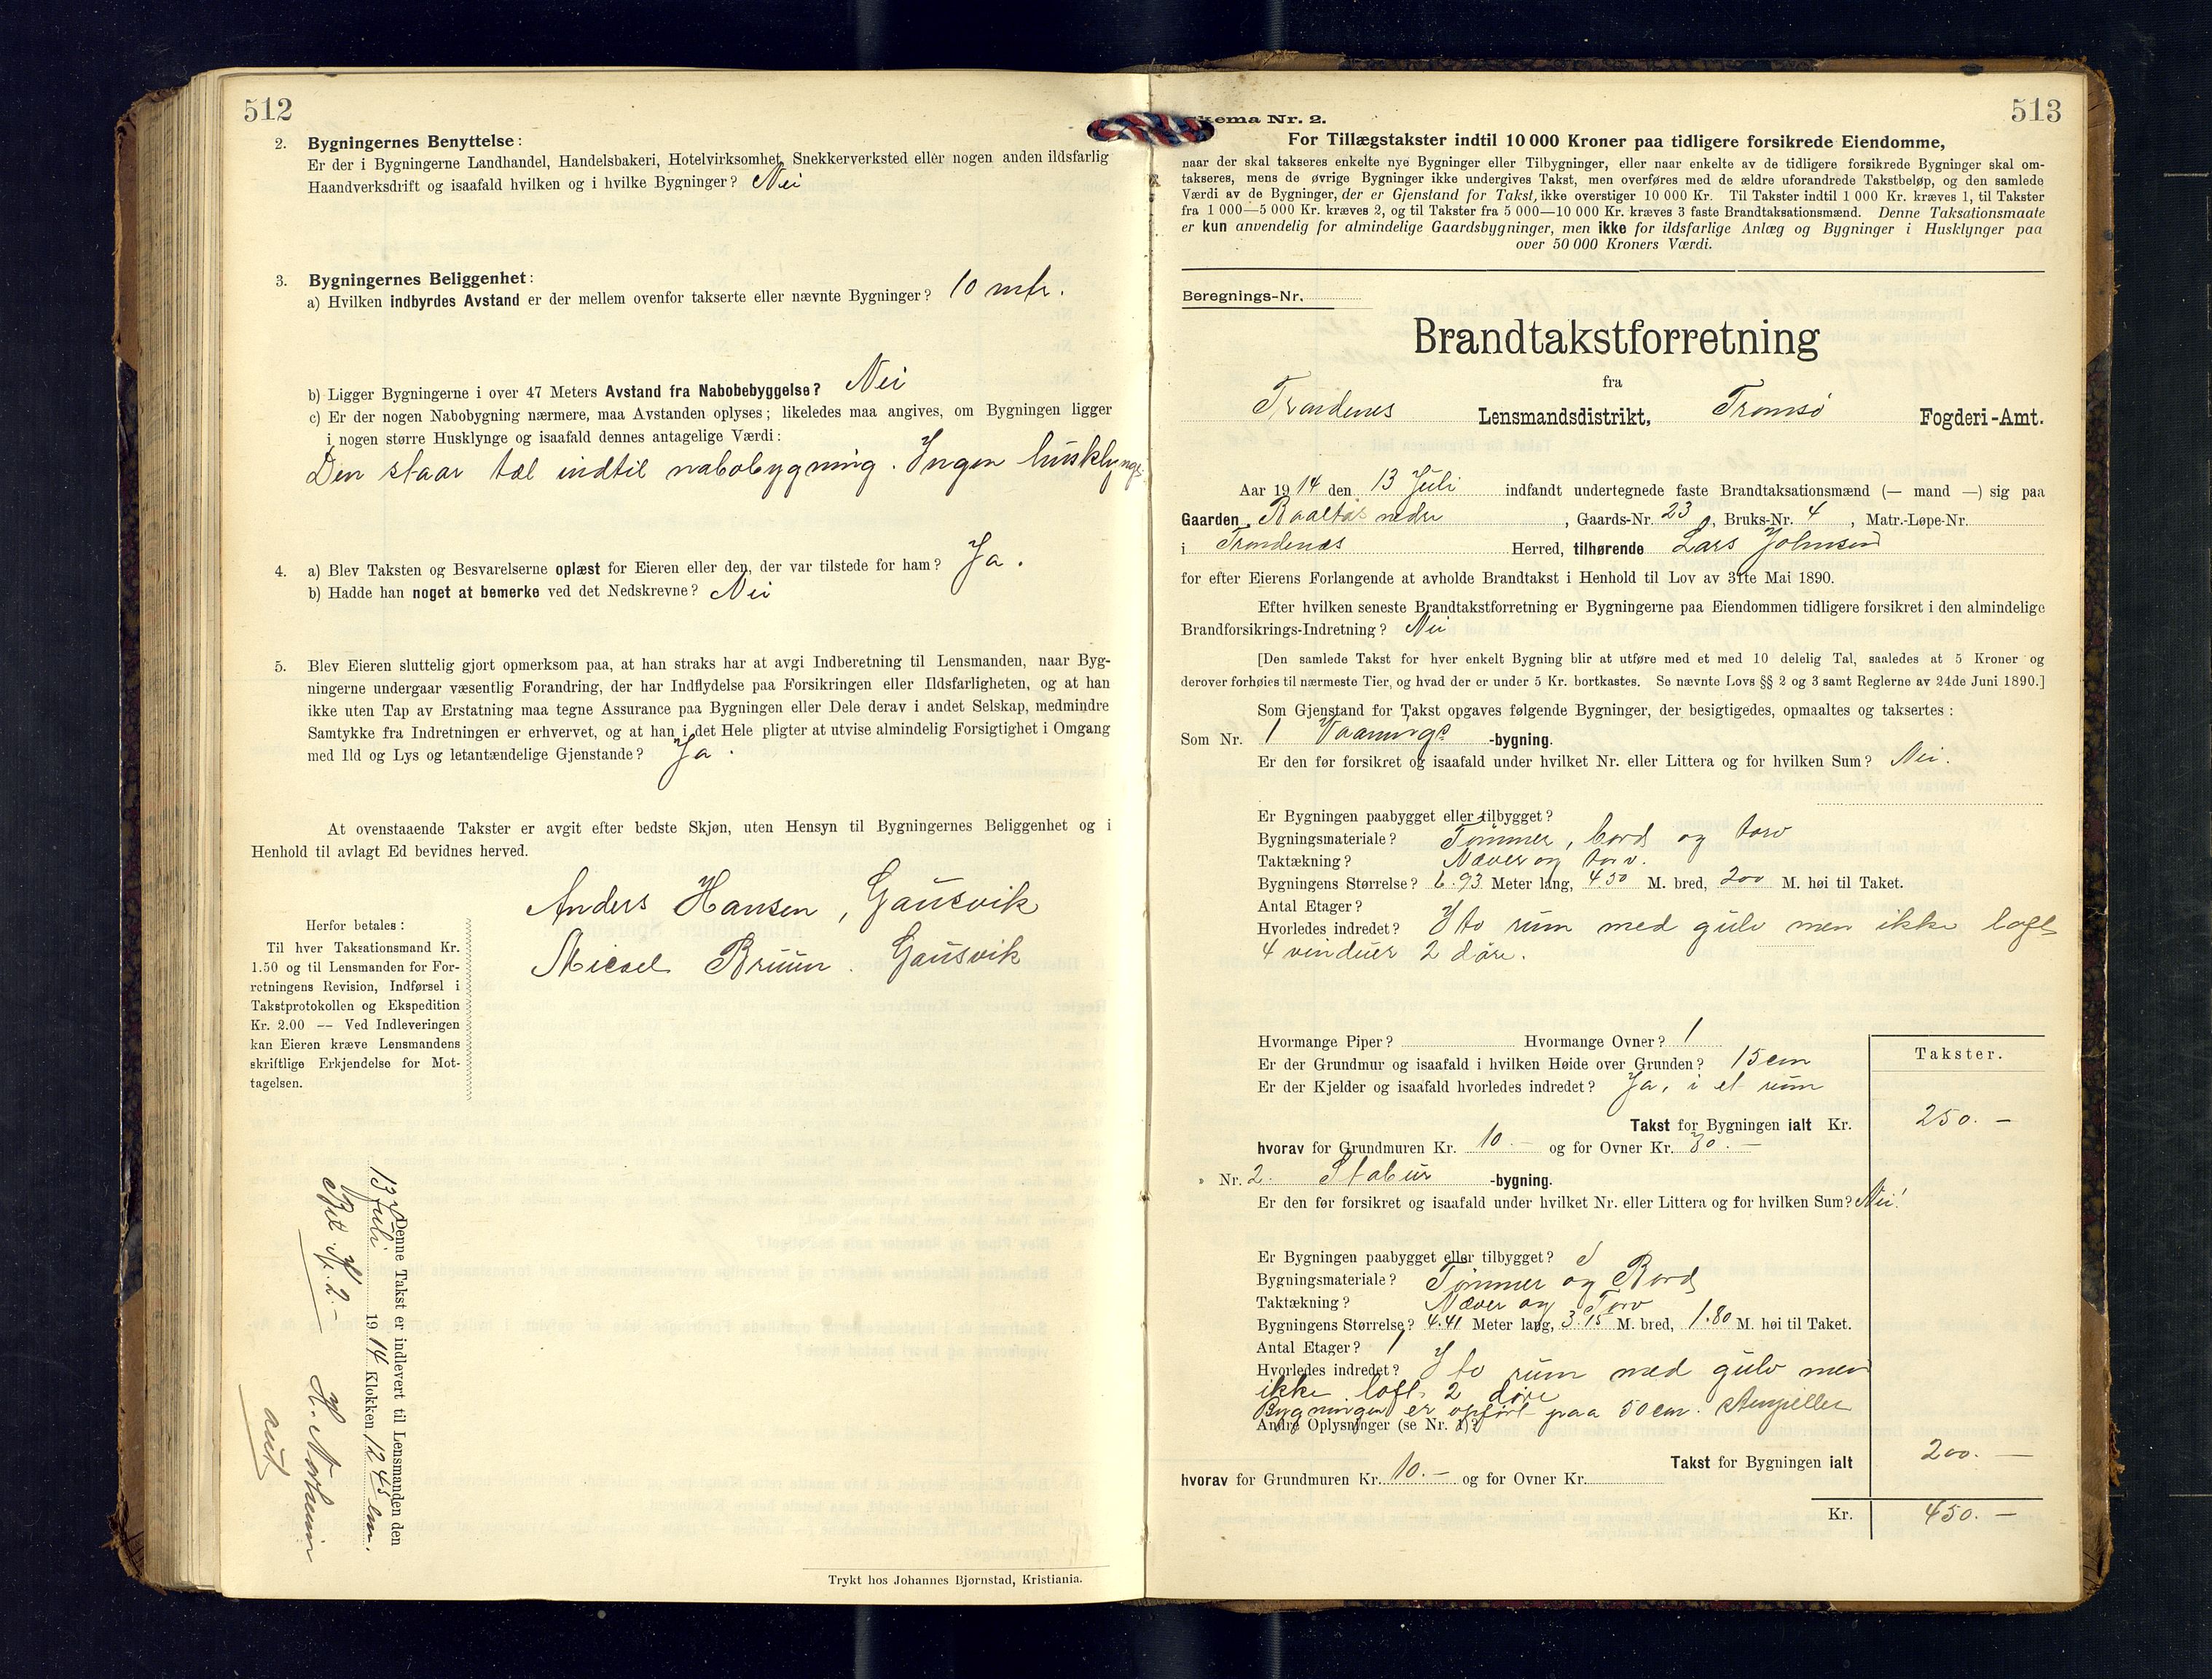 512
2. Bygningernes Benyttelse:
Er der i Bygningerne Landhandel, Handelsbakeri, Hotelvirksomhet, Snekkerverksted eller nogen anden ildsfarlig
Haandverksdrift og isaafald hvilken og i hvilke Bygninger? Nei
3. Bygningernes Beliggenhet:
a) Hvilken indbyrdes Avstand er der mellem ovenfor takserte eller nævnte Bygninger? 10 mtr.
b) Ligger Bygningerne i over 47 Meters Avstand fra Nabobebyggelse? Nei
c) Er der nogen Nabobygning nærmere, maa Avstanden oplyses; likeledes maa angives, om Bygningen ligger
i nogen større Husklynge og isaafald dennes antagelige Værdi:
Den staar tæt indtil nabobygning. Ingen husklynge
4. a) Blev Taksten og Besvarelserne oplæst for Eieren eller den, der var tilstede for ham? Ja.
b) Hadde han noget at bemerke ved det Nedskrevne? Nei
5. Blev Eieren sluttelig gjort opmerksom paa, at han straks har at avgi Indberetning til Lensmanden, naar Byg-
ningerne undergaar væsentlig Forandring, der har Indflydelse paa Forsikringen eller Ildsfarligheten, og at han
ikke uten Tap av Erstatning maa tegne Assurance paa Bygningen eller Dele derav i andet Selskap, medmindre
Samtykke fra Indretningen er erhvervet, og at han i det Hele pligter at utvise almindelig Forsigtighet i Omgang
med Ild og Lys og letantændelige Gjenstande? Ja.
At ovenstaaende Takster er avgit efter bedste Skjøn, uten Hensyn til Bygningernes Beliggenhet og i
Henhold til avlagt Ed bevidnes herved.
Anders Hansen, Gausvik
Micael Bruun. Gausvik
Herfor betales:
Til hver Taksationsmand Kr.
1.50 og til Lensmanden for For-
retningens Revision, Indførsel i
Takstprotokollen og Ekspedition
Kr. 2.00 — Ved Indleveringen
kan Eieren kræve Lensmandens
skriftlige Erkjendelse for Mot-
tagelsen.
Denne Takst er indlevert til Lensmanden den
13 Juli 1914 Klokken 12 45 em.
Bet. Kr. 2.-
aut
Trykt hos Johannes Bjørnstad, Kristiania.
513
Skema Nr. 2.
For Tillægstakster indtil 10 000 Kroner paa tidligere forsikrede Eiendomme,
naar der skal takseres enkelte nye Bygninger eller Tilbygninger, eller naar enkelte av de tidligere forsikrede Bygninger skal om-
takseres, mens de øvrige Bygninger ikke undergives Takst, men overføres med de ældre uforandrede Takstbeløp, og den samlede
Værdi av de Bygninger, der er Gjenstand for Takst, ikke overstiger 10 000 Kr. Til Takster indtil 1 000 Kr. kræves 1, til Takster
fra 1 000—5 000 Kr. kræves 2, og til Takster fra 5 000—10 000 Kr. kræves 3 faste Brandtaksationsmænd. Denne Taksationsmaate
er kun anvendelig for almindelige Gaardsbygninger, men ikke for ildsfarlige Anlæg og Bygninger i Husklynger paa
over 50 000 Kroners Værdi.
Beregnings-Nr.
Brandtakstforretning
fra
Trondenes Lensmandsdistrikt, Tromsø Fogderi-Amt.
Aar 1914 den 13 Juli indfandt undertegnede faste Brandtaksationsmænd (— mand —) sig paa
Gaarden nedre, Gaards-Nr. 23, Bruks-Nr. 4, Matr.-Løpe-Nr.
i Trondenæs Herred, tilhørende Lars Johnsen
for efter Eierens Forlangende at avholde Brandtakst i Henhold til Lov av 31te Mai 1890.
Efter hvilken seneste Brandtakstforretning er Bygningerne paa Eiendommen tidligere forsikret i den almindelige
Brandforsikrings-Indretning? Nei
[Den samlede Takst for hver enkelt Bygning blir at utføre med et med 10 delelig Tal, saaledes at 5 Kroner og
derover forhøies til nærmeste Tier, og hvad der er under 5 Kr. bortkastes. Se nævnte Lovs §§ 2 og 3 samt Reglerne av 24de Juni 1890.]
Som Gjenstand for Takst opgaves følgende Bygninger, der besigtigedes, opmaaltes og taksertes:
Som Nr. 1 Vaanings -bygning.
Er den før forsikret og isaafald under hvilket Nr. eller Littera og for hvilken Sum? Nei.
Er Bygningen paabygget eller tilbygget?
Bygningsmateriale? Tømmer, bord og torv
Taktækning? Næver og torv.
Bygningens Størrelse? 6.93 Meter lang, 4.50 M. bred, 200 M. høi til Taket.
Antal Etager?
Hvorledes indredet? I to rum med gulv men ikke loft
4 vinduer 2 døre.
Hvormange Piper? Hvormange Ovner? 1
Er der Grundmur og isaafald i hvilken Høide over Grunden? 15 cm
Er der Kjelder og isaafald hvorledes indredet? Ja, i et rum
Takster.
Takst for Bygningen ialt Kr. 250.—
hvorav for Grundmuren Kr. 10.— og for Ovner Kr. 30.—
" Nr. 2. Stabur -bygning.
Er den før forsikret og isaafald under hvilket Nr. eller Littera og for hvilken Sum? Nei!
Er Bygningen paabygget eller tilbygget?
Bygningsmateriale? Tømmer og Bord
Taktækning? Næver og Torv
Bygningens Størrelse? 4.41 Meter lang, 3.15 M. bred, 1.80 M. høi til Taket.
Antal Etager? 1
Hvorledes indredet? I to rum med gulv men
ikke loft. 2 døre
Bygningen er opført paa 50 cm. stenpiller
Andre Oplysninger (se Nr. 1)?
Takst for Bygningen ialt 200.—
hvorav for Grundmuren Kr. 10.— og for Ovner Kr.
Kr. 450.—